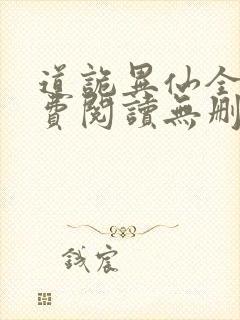 道詭異仙全
費閱讀無刪
錢宸